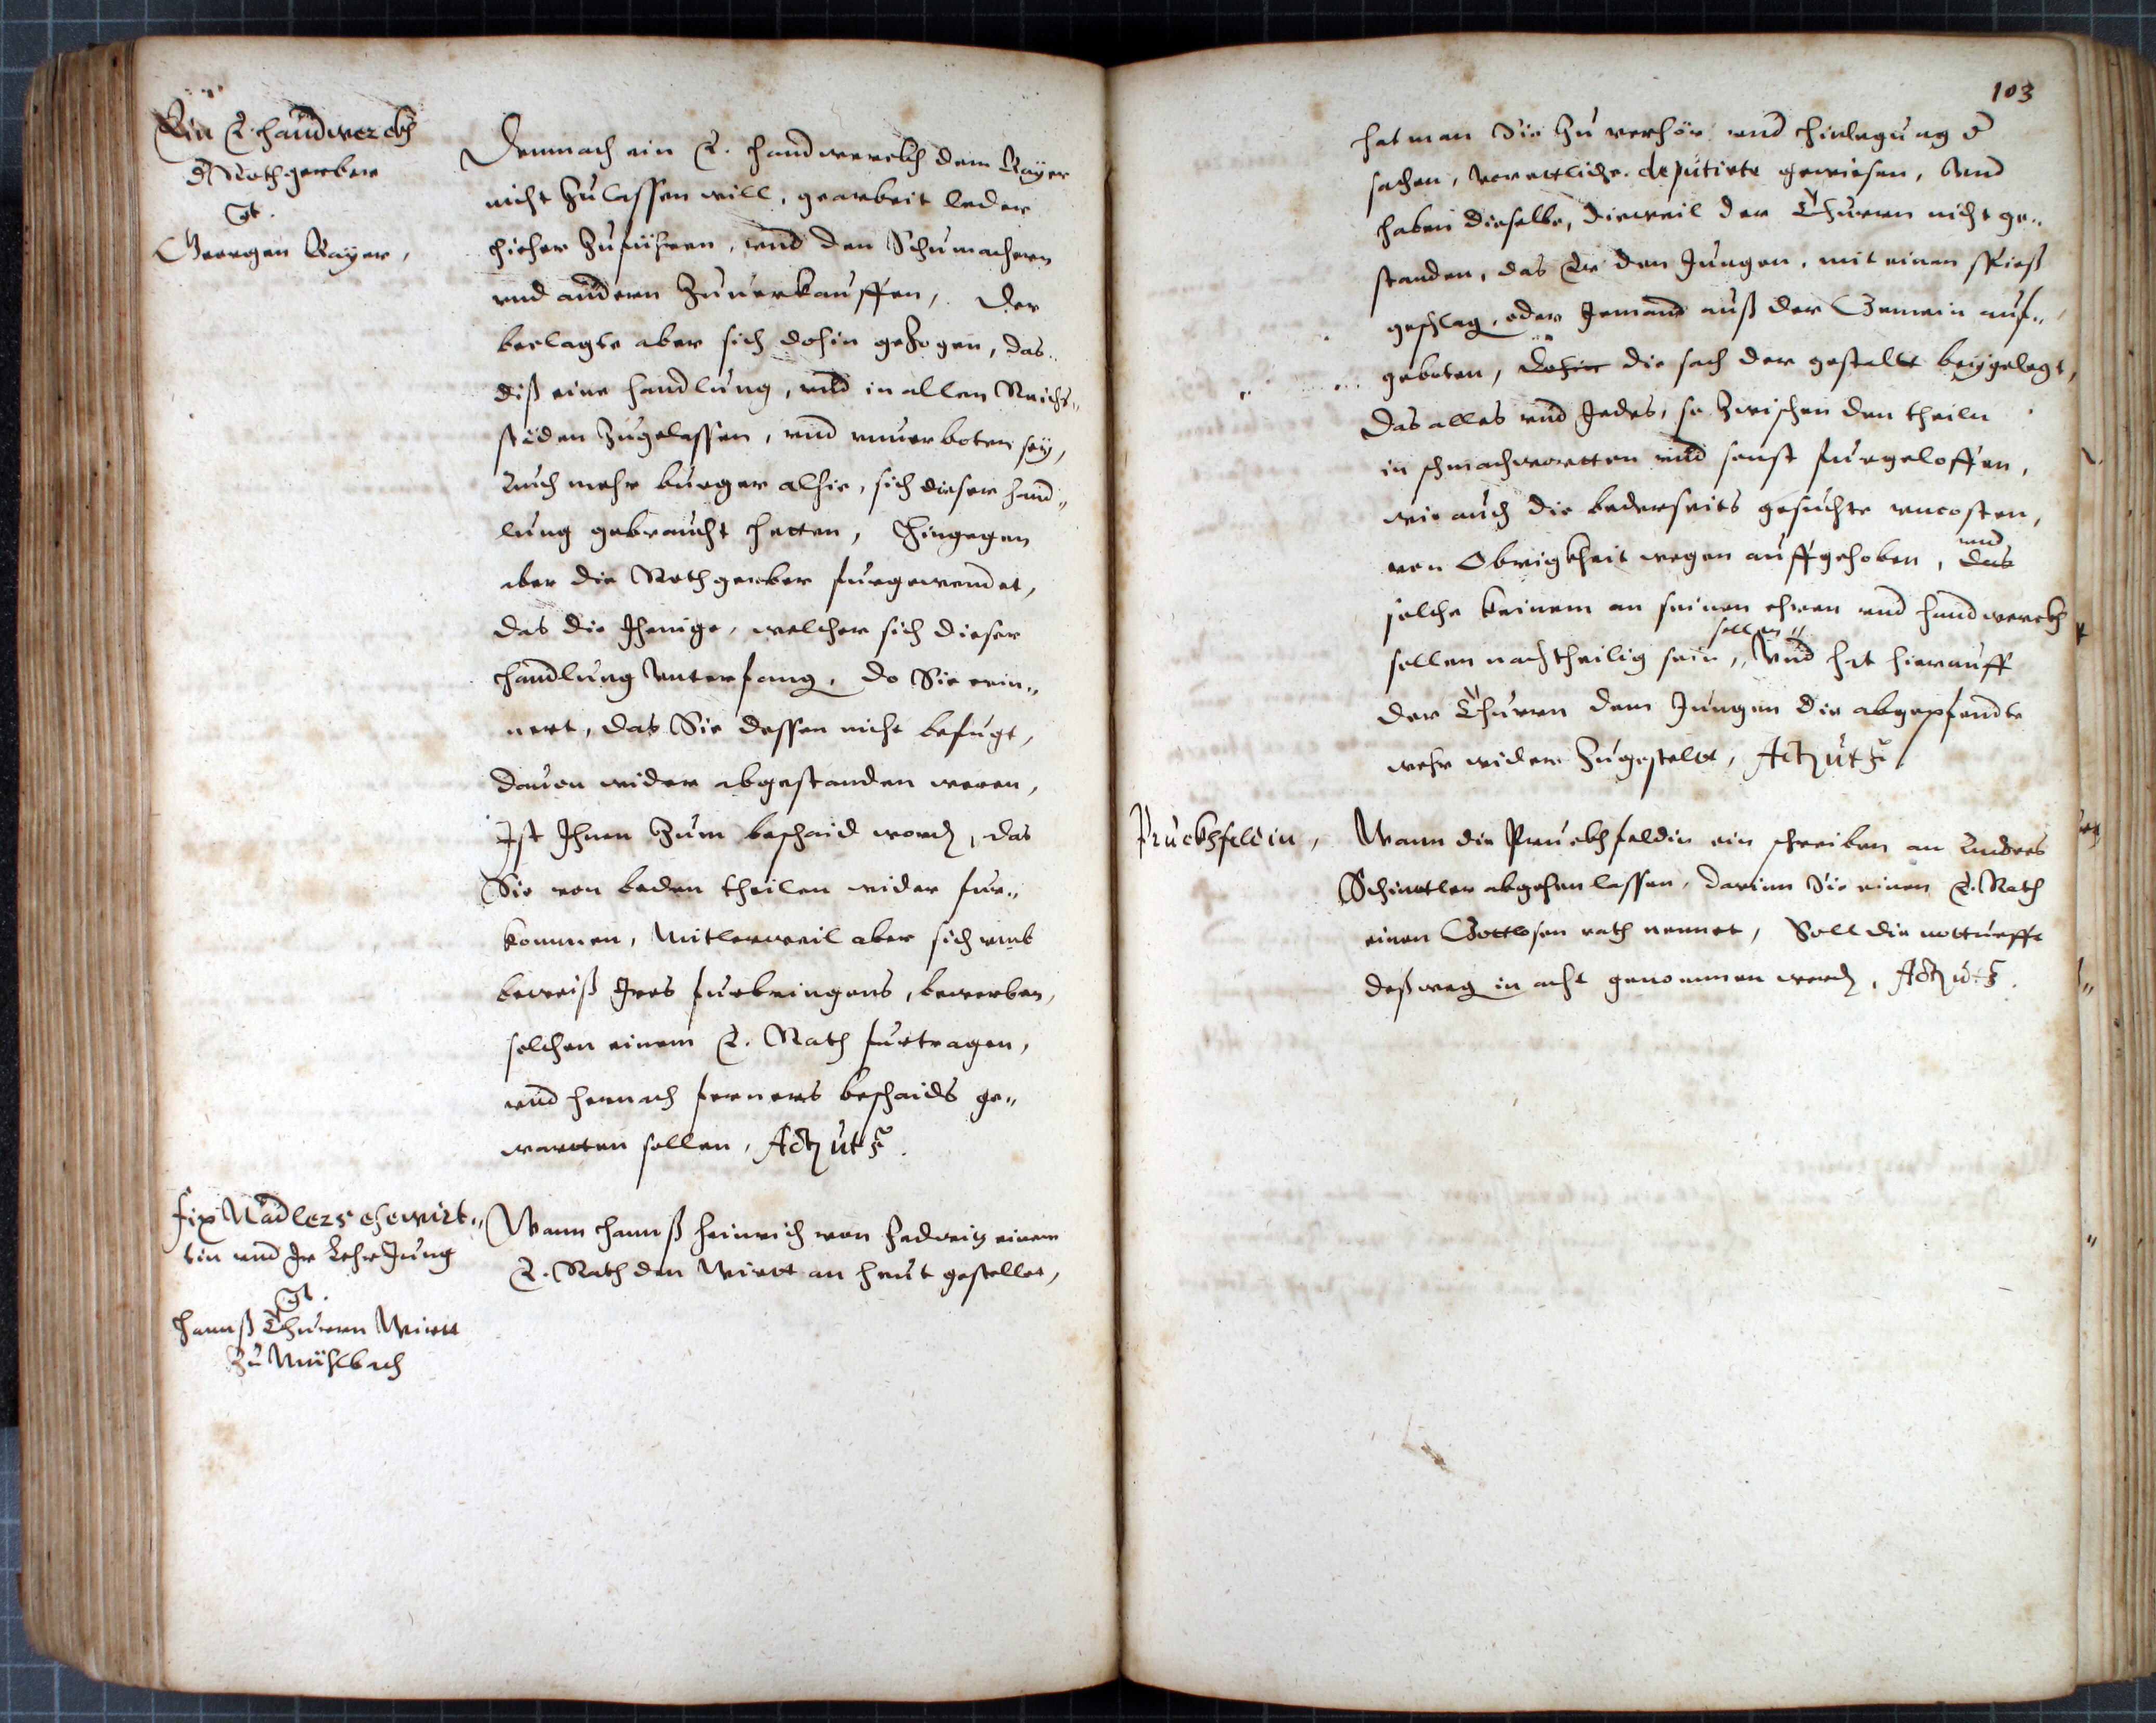 Ein E. Handwerckh
d Rothgerber
Ct.
Georgen Bayer,
Demnach ein E. Handwerckh dem Bayer
nicht Zulassen will, gearbeit leder
hieher Zuführen, vnd den Schumachern
vnd andern Zuuerkauffen, der
beclagte aber sich dohin gezogen, das
diß eine handlung, vnd in allen Reichs„
steden Zugelassen, vnd vnuerboten sey,
Auch mehr burger alhie, sich dieser hand„
lung gebraucht hetten, Hingegen
aber die Rothgerber furgewendet,
das die Jhenige, welcher sich dieser
handlung Vnterfang, do Sie erin„
nert, das Sie dessen nicht befugt,
dauon wider abgestanden weren,
Jst Jhnen Zum beschaid word, das
Sie von beden theilen wider fur„
kommen, Mitlerweil aber sich vmb
beweiß Jres furbringens, bewerben,
solchen einem E. Rath furtragen,
vnd hernach ferners beschaids ge„
wartten sollen, Act ut s.
fix Nadlers ehewirt„
tin vnd Jr LehrJung
Ct.
Hannß Thurn Wirtt
Zu Mühlbach
Wann Hannß Heinrich von Zedwitz einem
E. Rath den Wirtt an heut gestellet,
103
hat man Sie Zu verhör vnd Hinlegung d
sachen, verettliche deputirte gewiesen, Vnd
haben dieselbe, dieweil der Thurn nicht ge„
standen, das Er den Jungen, mit einen spieß
geschlag, oder Jemand auß der Gemein auf„
geboten, die sach der gestallt beygelegt,
Das alles vnd Jedes, so Zwischen den theiln
in schmachwortten vnd sonst furgeloffen,
wie auch die bederseits gesuchte vncosten,
von Obrigkheit wegen auffgehoben, das
vnd
solche keinem an seinen ehren vnd handwerckh
sollen
sollen nachtheilig sein, Vnd hat hierauff
der Thurn dem Jungen die abgepfendte
wehr wider Zugestellt, Act ut s.
Pruckhfeldin,
Wann die Pruckhfeldin ein schreiben an Andres
Schinttler abgehen lassen, darinn Sie einen E. Rath
einen Gottlosen rath nennet, Soll die notturfft
deßweg in acht genommen werd, Act ut s.